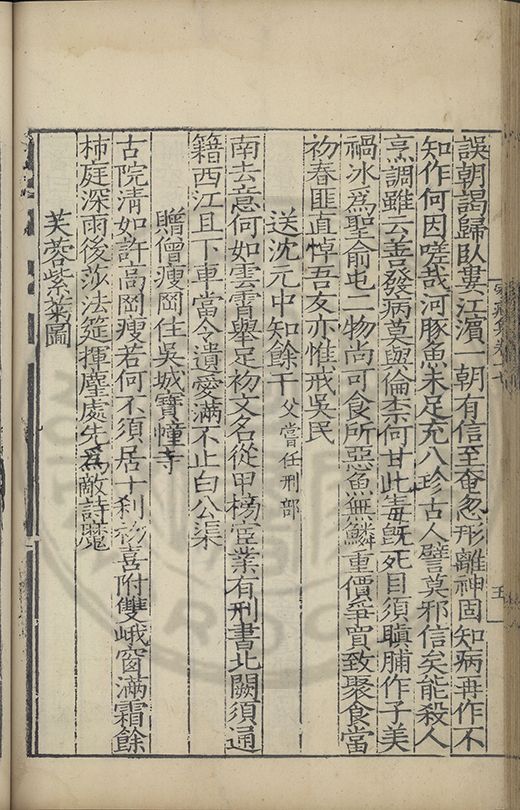 誤朝謁歸臥婁江濵一朝有信至奋忽形離神固知病再作不
知作何因嗟哉河豚魚未足充八珍古人譬莫邪信矣能殺人
烹調雖云善發病莫與倫柰何甘此毒旣死目須瞋脯作子美
禍冰爲聖俞屯二物尚可食所惡魚無鱗重價爭買致聚食當
初春匪直悼吾友亦惟戒吳民
送沈元中知餘干 父嘗任刑部
南去意何如雲霄舉足初文名從甲榜宦業有刑書北闕須通
籍西江且下車當令遺愛滿不止白公渠
贈僧瘦岡住吳城寶幢寺
古院淸如許高岡瘦若何不須居十刹喜附雙峨窗滿霜餘
柿庭深雨後莎法筵揮麈處先爲敵詩魔
芙蓉紫菊圖
五